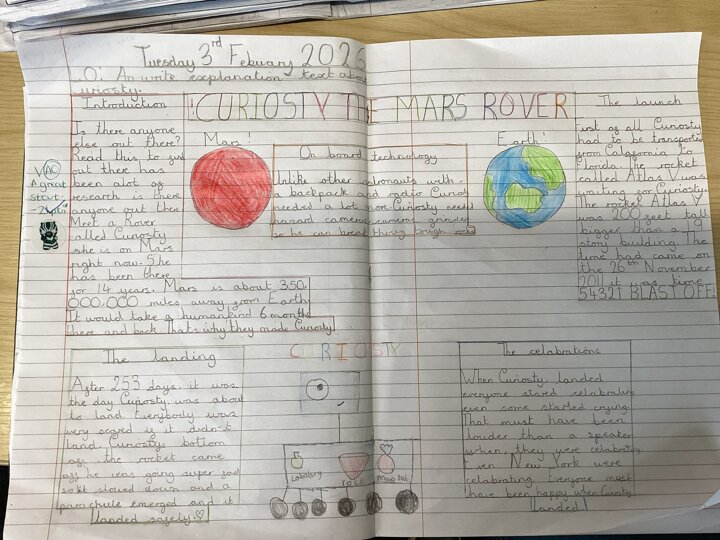 Tuesday 3rd Febuary 2026
.O: An write explanation text about
uriosty.
Introduction
Is there anyone
else out there?
Read this to find
out there has
been alot of
research is there
anyone out there
Meet a rover
called Curiosty
she is on Mars
right now. She
has been there
for 14 years. Mars is about 350
000,000 miles away from Earth.
It would take a humankind 6 months
there and back. Thats why they made Curiosty
A great
start
!CURIOSTY THE MARS ROVER
Mars!
On board technology
Unlike other astronauts with
a backpack and radio Curiosty
needed a lot more. Curiosty needs
hazard cameras, camera grinder
so he can break thing tough rocks
Earth!
The launch
First of all Curiosty
had to be transported
from Calafornia to
Florida the rocket
called Atlas V was
waiting for Curiosty.
The rocket Atlas V
was 200 feet tall
bigger than a 19
story building. The
time had came on
the 26th November
2011 it was time
54321 BLAST OFF!
The landing
After 253 days it was
the day Curiosty was about
to land. Everybody was
very scared if it didn't
land. Curiostys bottom
off the rocket came
off he was going super fast
so it slowed down and a
parachute emerged and it
landed safely.
CURIOSTY
Labatory
The celabrations
When Curiosty landed
everyone stared celebrating
even some started crying.
That must have been
louder than a speaker
when they were celabrating
Even New York were
celabrating. Everyone must
have been happy when Curiosty
landed!